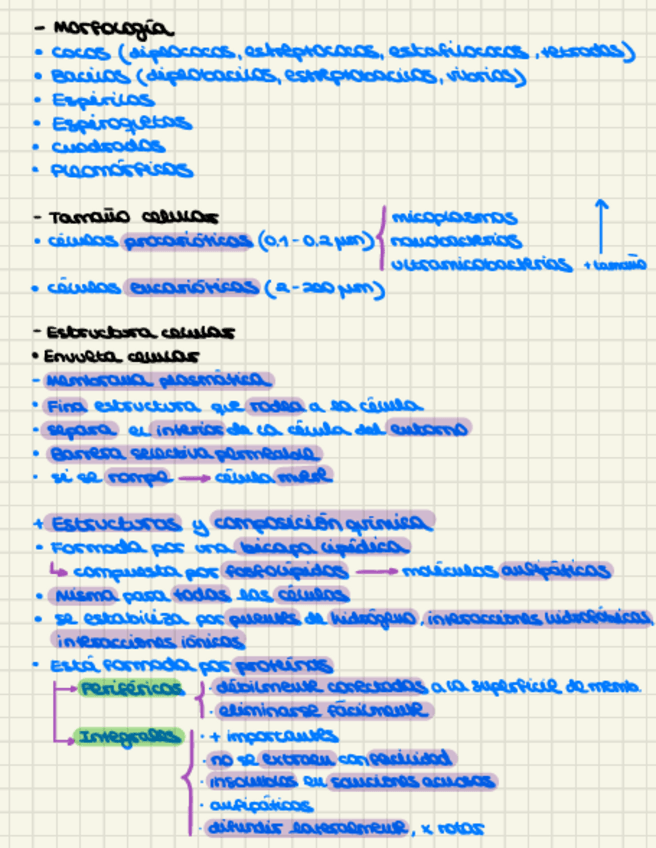 - Morfología
• cocos (diplococos, estreptococos, estafilococos, tetradas)
• Bacilos (diplobacilos, estreptobacilos, vibrios)
• Espirilos
• Espiroquetas
• cuadradas
• Pleomórficas
- Tamaño celular
• células procarióticas (0.1 - 0.2 μm) { micoplasmas
nanobacterias
ultramicobacterias + tamaño
• células eucarióticas (2 - 200 μm)
- Estructura celular
• Envuelta celular
- Membrana plasmática
• Fina estructura que rodea a la célula
• separa el interior de la célula del entorno
• Barrera selectiva permeable
• si se rompe → célula muere
+ Estructuras y composición química
• Formada por una bicapa lipídica
↳ compuesta por fosfolípidos → moléculas anfipáticas
• Misma para todas las células
• se estabiliza por puentes de hidrógeno, interacciones hidrofóbicas,
interacciones iónicas
• Está formada por proteínas
→ Periféricas { · débilmente conectadas a la superficie de memb.
· eliminarse fácilmente
→ Integrales { · + importantes
· no se extraen con facilidad
· insolubles en soluciones acuosas
· anfipáticas
· difundir lateralmente, x rotar